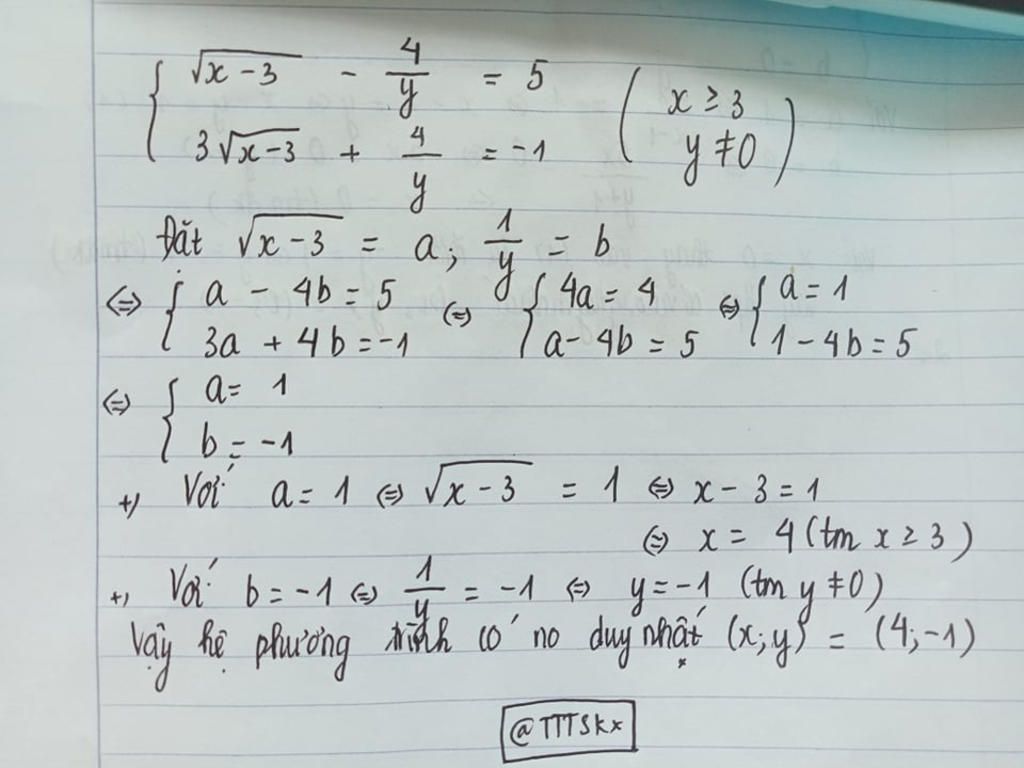 { √(x-3) - 4/y = 5 ( x ≥ 3
{ 3√(x-3) + 4/y = -1 y ≠ 0 )
Đặt √(x-3) = a; 1/y = b
⇔ { a - 4b = 5 ⇔ { 4a = 4 ⇔ { a = 1
{ 3a + 4b = -1 { a - 4b = 5 { 1 - 4b = 5
⇔ { a = 1
{ b = -1
+, Với a = 1 ⇔ √(x-3) = 1 ⇔ x - 3 = 1
⇔ x = 4 (tm x ≥ 3)
+, Với b = -1 ⇔ 1/y = -1 ⇔ y = -1 (tm y ≠ 0)
Vậy hệ phương trình có no duy nhất (x;y) = (4;-1)
@TTTSkx